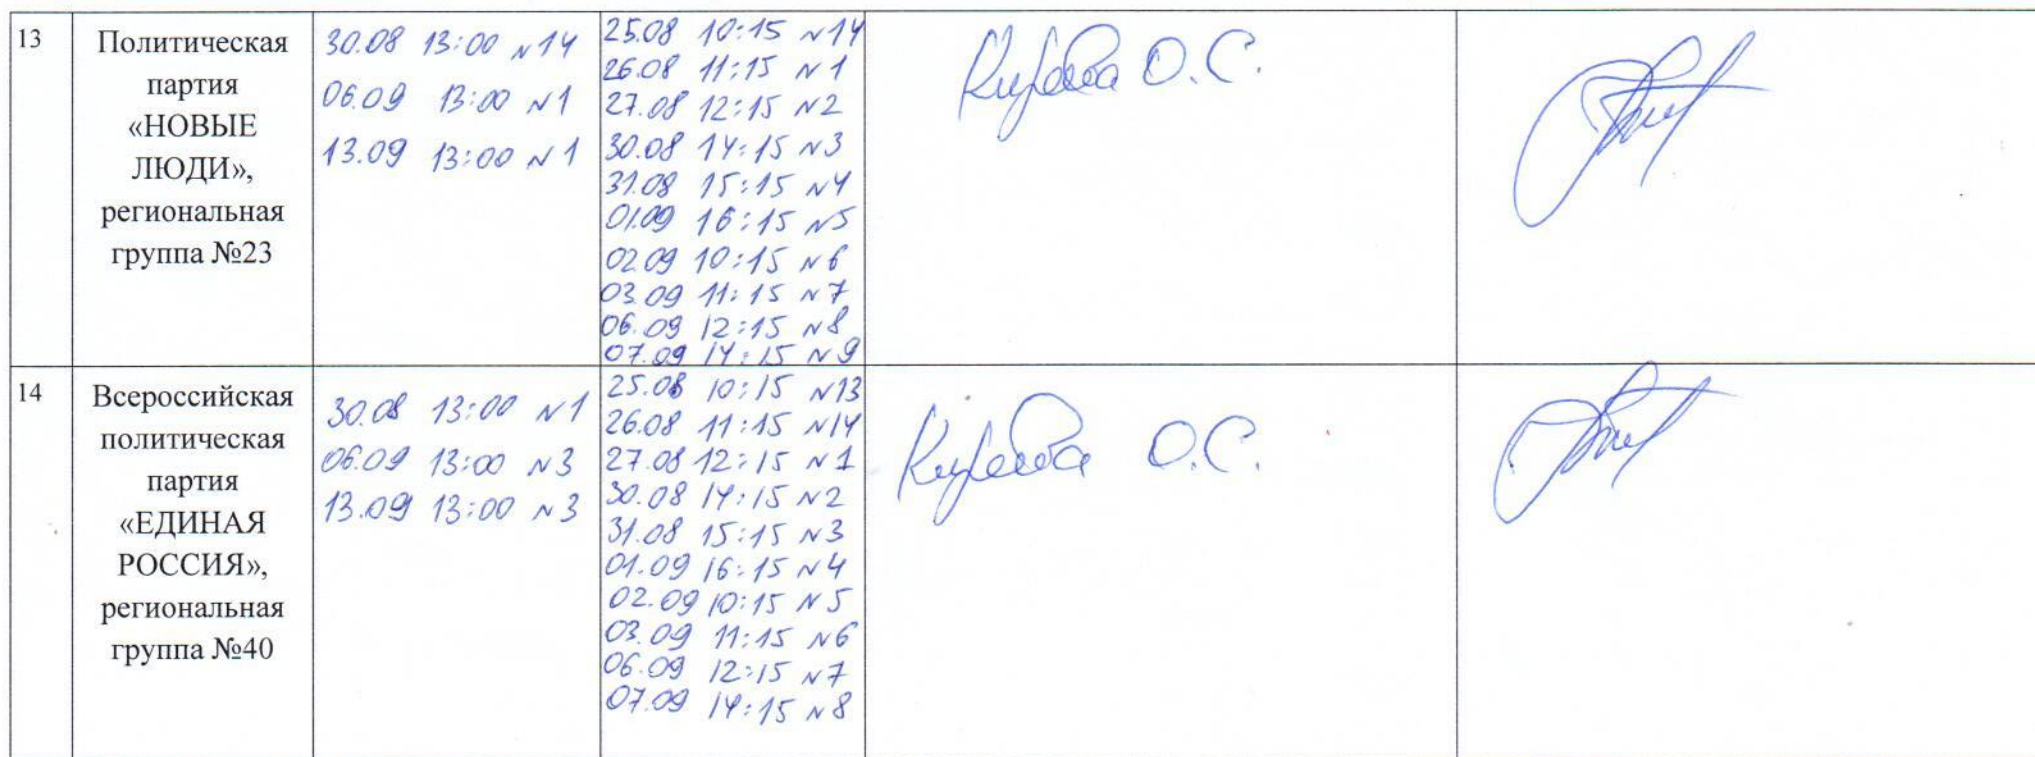 13
Политическая
партия
«НОВЫЕ
ЛЮДИ»,
региональная
группа №23
30.08 13:00 №14
06.09 13:00 №1
13.09 13:00 №1
25.08 10:15 №14
26.08 11:15 №1
27.08 12:15 №2
30.08 14:15 №3
31.08 15:15 №4
01.09 16:15 №5
02.09 10:15 №6
03.09 11:15 №7
06.09 12:15 №8
07.09 14:15 №9
О.С.
14
Всероссийская
политическая
партия
«ЕДИНАЯ
РОССИЯ»,
региональная
группа №40
30.08 13:00 №1
06.09 13:00 №3
13.09 13:00 №3
25.08 10:15 №13
26.08 11:15 №14
27.08 12:15 №1
30.08 14:15 №2
31.08 15:15 №3
01.09 16:15 №4
02.09 10:15 №5
03.09 11:15 №6
06.09 12:15 №7
07.09 14:15 №8
О.С.